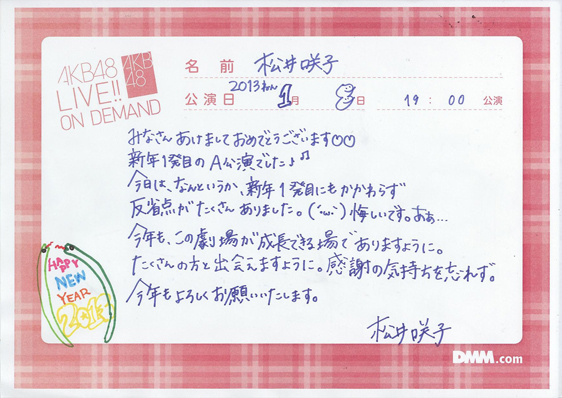 AKB48
LIVE!!
ON DEMAND
AKB
48
名前 松井咲子
2013ねん
公演日 1月 日 19:00 公演
みなさんあけましておめでとうございます♡♡
新年1発目のA公演でした♪♫
今日は、なんというか、新年1発目にもかかわらず
反省点がたくさんありました。(´・ω・`)悔しいです。あぁ…
今年も、この劇場が成長できる場でありますように。
たくさんの方と出会えますように。感謝の気持ちを忘れず。
今年もよろしくお願いいたします。
HAPPY
NEW
YEAR
2013
松井咲子
DMM.com